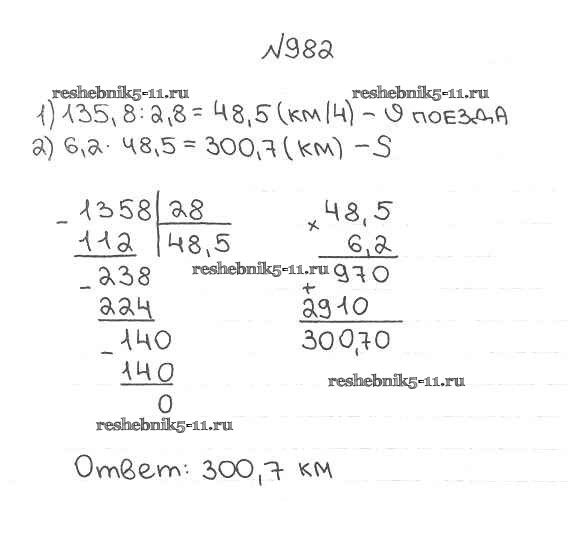 №982
reshebnik5-11.ru reshebnik5-11.ru
1) 135,8 : 2,8 = 48,5 (км/ч) – υ поезда
2) 6,2 · 48,5 = 300,7 (км) – S
- 1358 | 28
112 | 48,5
- 238
224
- 140
140
0
× 48,5
6,2
+ 970
2910
300,70
reshebnik5-11.ru
reshebnik5-11.ru
reshebnik5-11.ru
Ответ: 300,7 км